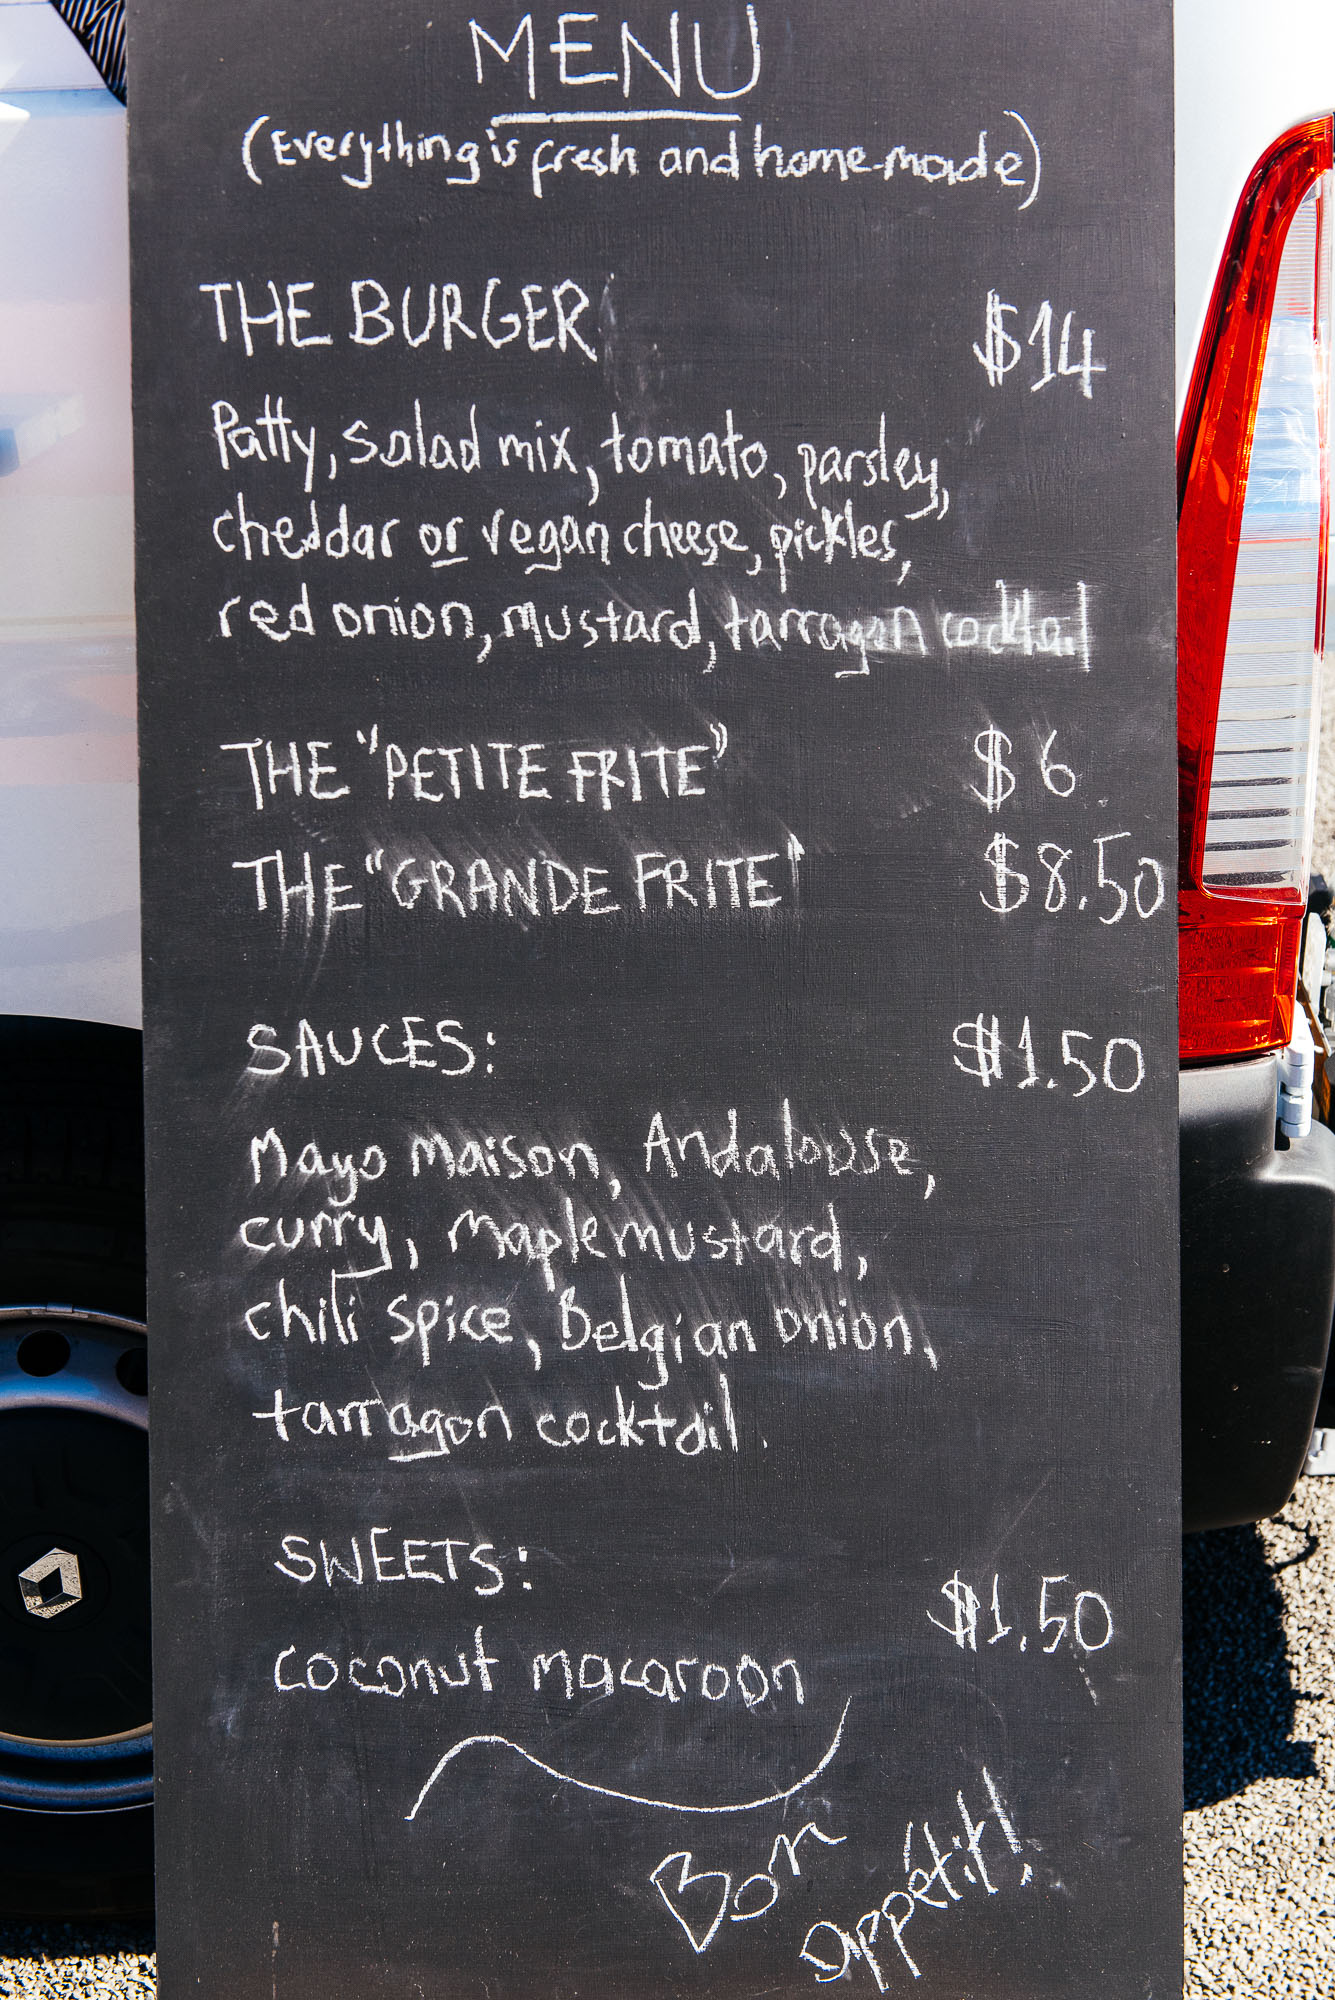 MENU
(Everything is fresh and home-made)
THE BURGER $14
Patty, salad mix, tomato, parsley,
cheddar or vegan cheese, pickles,
red onion, mustard, tarragon cocktail
THE "PETITE FRITE" $6
THE "GRANDE FRITE" $8.50
SAUCES: $1.50
Mayo maison, Andalouse,
curry, maple mustard,
chili spice, Belgian onion,
tarragon cocktail.
SWEETS: $1.50
coconut macaroon
Bon
appétit!